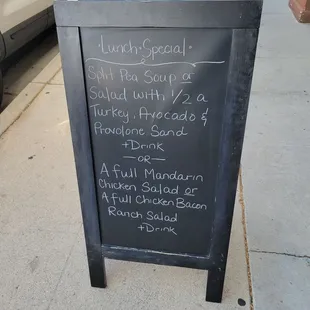 Lunch Special
Split Pea Soup or
Salad with 1/2 a
Turkey, Avocado &
Provolone Sand
+Drink
—OR—
A full Mandarin
Chicken Salad or
A full Chicken Bacon
Ranch Salad
+Drink